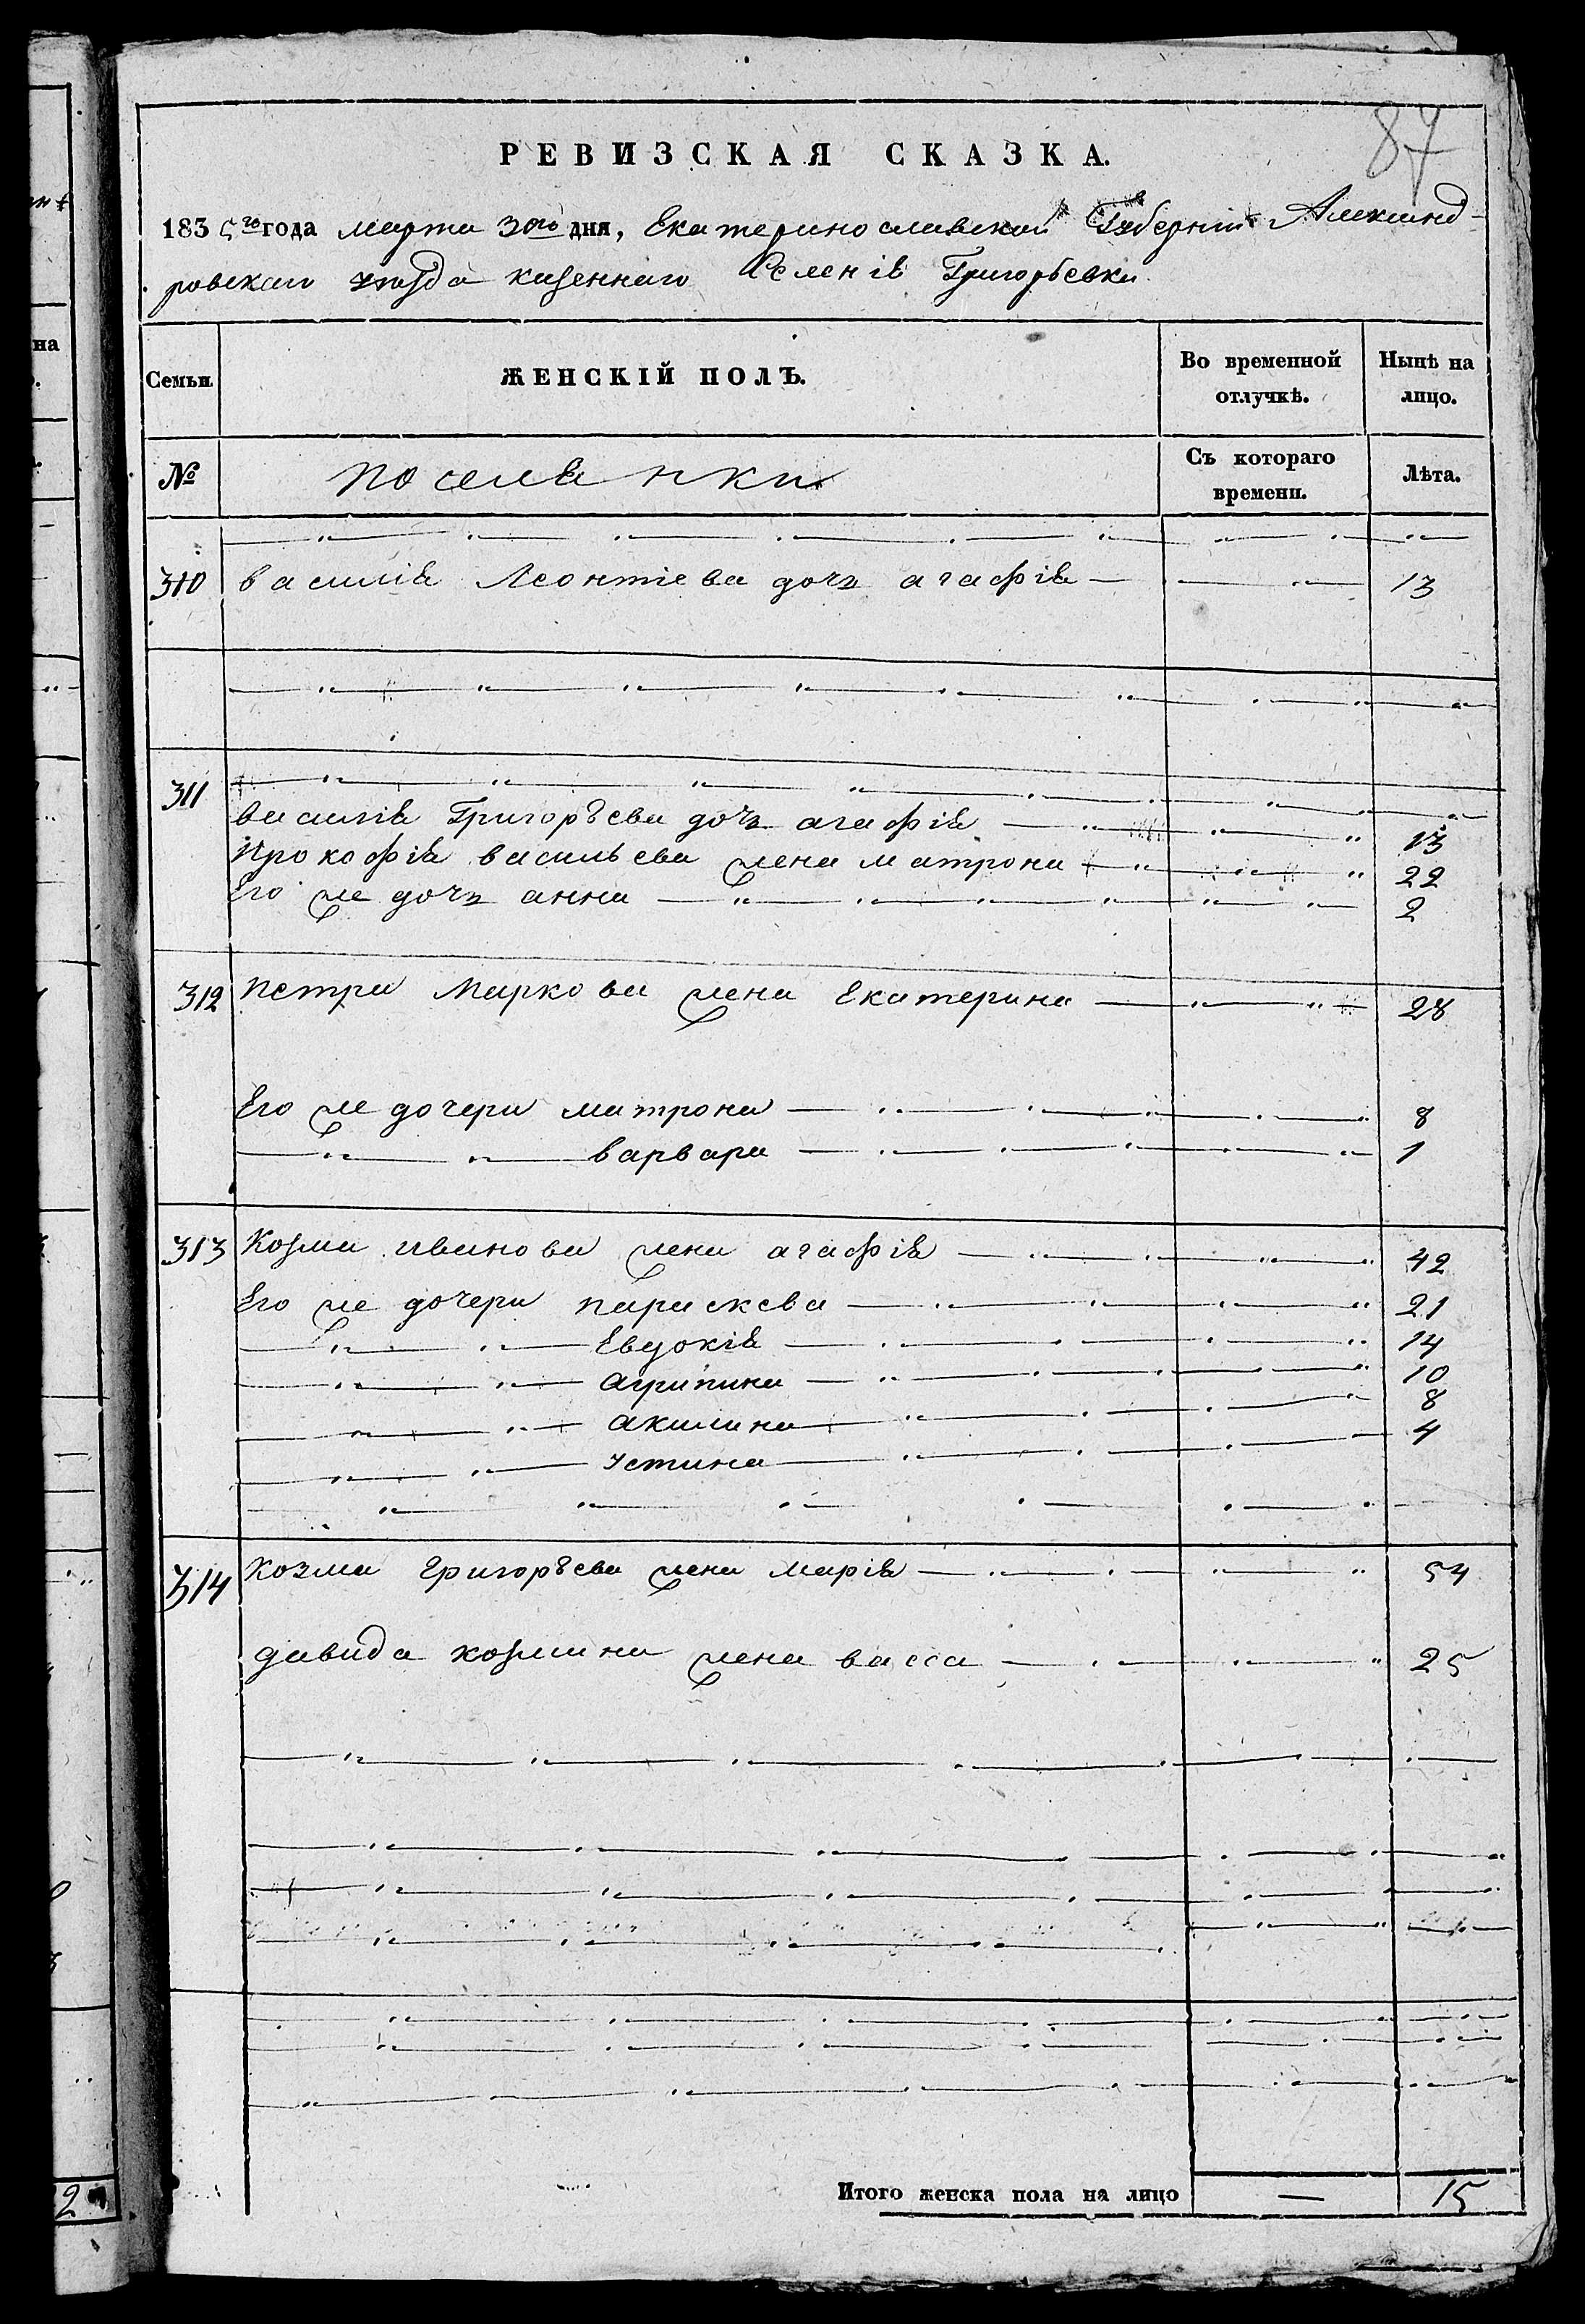 87
РЕВИЗСКАЯ СКАЗКА.
1835го года марта 30го дня, Екатеринославской Губернии Александ-
ровскаго уезда казеннаго Селенія Григорьевки
Семьи
ЖЕНСКІЙ ПОЛЪ.
Во временной отлучкѣ.
Нынѣ на лицо.
№
поселянки
Съ котораго времени.
Лѣта.
310 василія Леонтіева дочъ агафія 13
311
василія Григорьева дочъ агафія 13
Прокофія васильева жена матрона 22
Его же дочъ анна 2
312 петра Маркова жена Екатерина 28
Его же дочери матрона 8
варвара 1
313 Козма иванова жена агафія 42
Его же дочери параскева 21
Евдокія 14
агрипина 10
акилина 8
устина 4
314 Козма григорьева жена Марія 54
давида козмина жена васса 25
Итого женска пола на лицо — 15
2
на